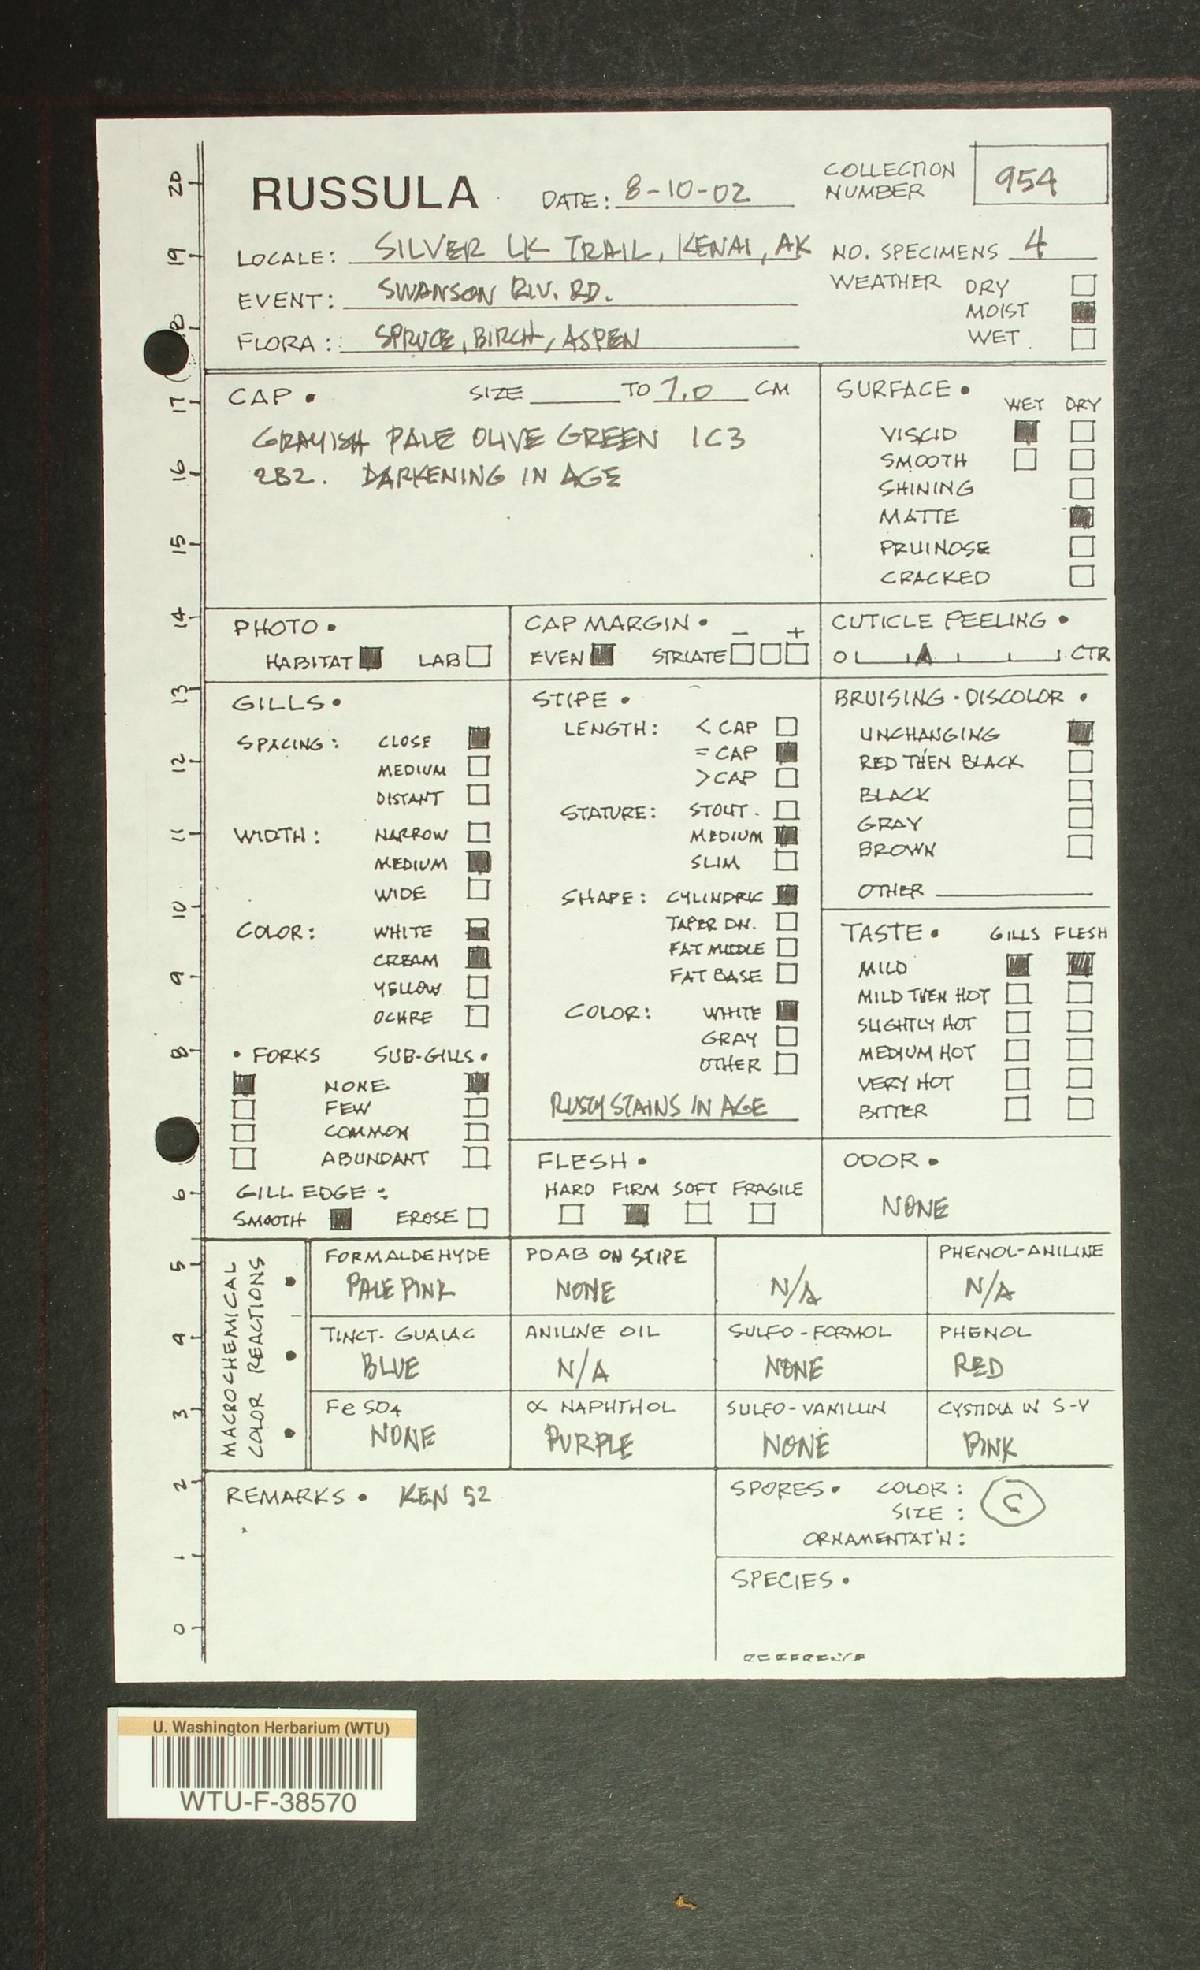 RUSSULA
DATE: 8-10-02
COLLECTION NUMBER 954
LOCALE: SILVER LK TRAIL, KENAI, AK
NO. SPECIMENS 4
EVENT: SWANSON RIV. RD.
WEATHER DRY
MOIST
WET
FLORA: SPRUCE, BIRCH, ASPEN
CAP • SIZE TO 7.0 CM
GRAYISH PALE OLIVE GREEN 1C3
2B2. DARKENING IN AGE
SURFACE •
WET DRY
VISCID
SMOOTH
SHINING
MATTE
PRUINOSE
CRACKED
PHOTO •
HABITAT LAB
CAP MARGIN • - +
EVEN STRIATE
CUTICLE PEELING •
0 CTR
GILLS •
SPACING: CLOSE
MEDIUM
DISTANT
WIDTH: NARROW
MEDIUM
WIDE
COLOR: WHITE
CREAM
YELLOW
OCHRE
• FORKS SUB-GILLS •
NONE
FEW
COMMON
ABUNDANT
GILL EDGE:
SMOOTH EROSE
STIPE •
LENGTH: < CAP
= CAP
> CAP
STATURE: STOUT
MEDIUM
SLIM
SHAPE: CYLINDRIC
TAPER DN.
FAT MIDDLE
FAT BASE
COLOR: WHITE
GRAY
OTHER
RUSTY STAINS IN AGE
FLESH •
HARD FIRM SOFT FRAGILE
BRUISING - DISCOLOR •
UNCHANGING
RED THEN BLACK
BLACK
GRAY
BROWN
OTHER
TASTE • GILLS FLESH
MILD
MILD THEN HOT
SLIGHTLY HOT
MEDIUM HOT
VERY HOT
BITTER
ODOR •
NONE
MACROCHEMICAL
COLOR REACTIONS
FORMALDEHYDE
PALE PINK
PDAB ON STIPE
NONE
N/A
PHENOL-ANILINE
N/A
TINCT. GUAIAC
BLUE
ANILINE OIL
N/A
SULFO-FORMOL
NONE
PHENOL
RED
FeSO4
NONE
∝ NAPHTHOL
PURPLE
SULFO-VANILLIN
NONE
CYSTIDIA IN S-V
PINK
REMARKS • KEN 52
SPORES • COLOR: C
SIZE:
ORNAMENTAT'N:
SPECIES •
20
19
17
16
15
14
13
12
11
10
9
8
6
5
4
3
2
1
0
U. Washington Herbarium (WTU)
WTU-F-38570